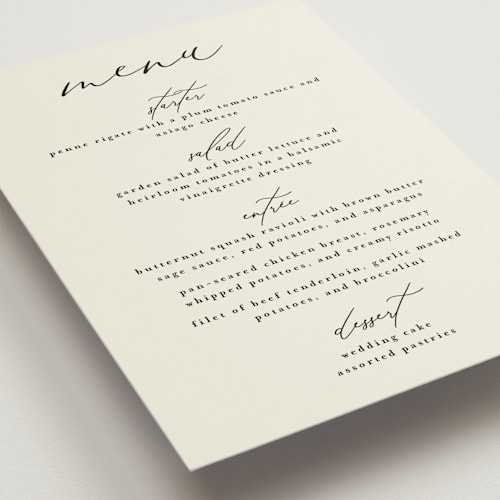 menu
starter
penne rigate with a plum tomato sauce and
asiago cheese
salad
garden salad of butter lettuce and
heirloom tomatoes in a balsamic
vinaigrette dressing
entrée
butternut squash ravioli with brown butter
sage sauce, red potatoes, and asparagus
pan-seared chicken breast, rosemary
whipped potatoes, and creamy risotto
filet of beef tenderloin, garlic mashed
potatoes, and broccolini
dessert
wedding cake
assorted pastries